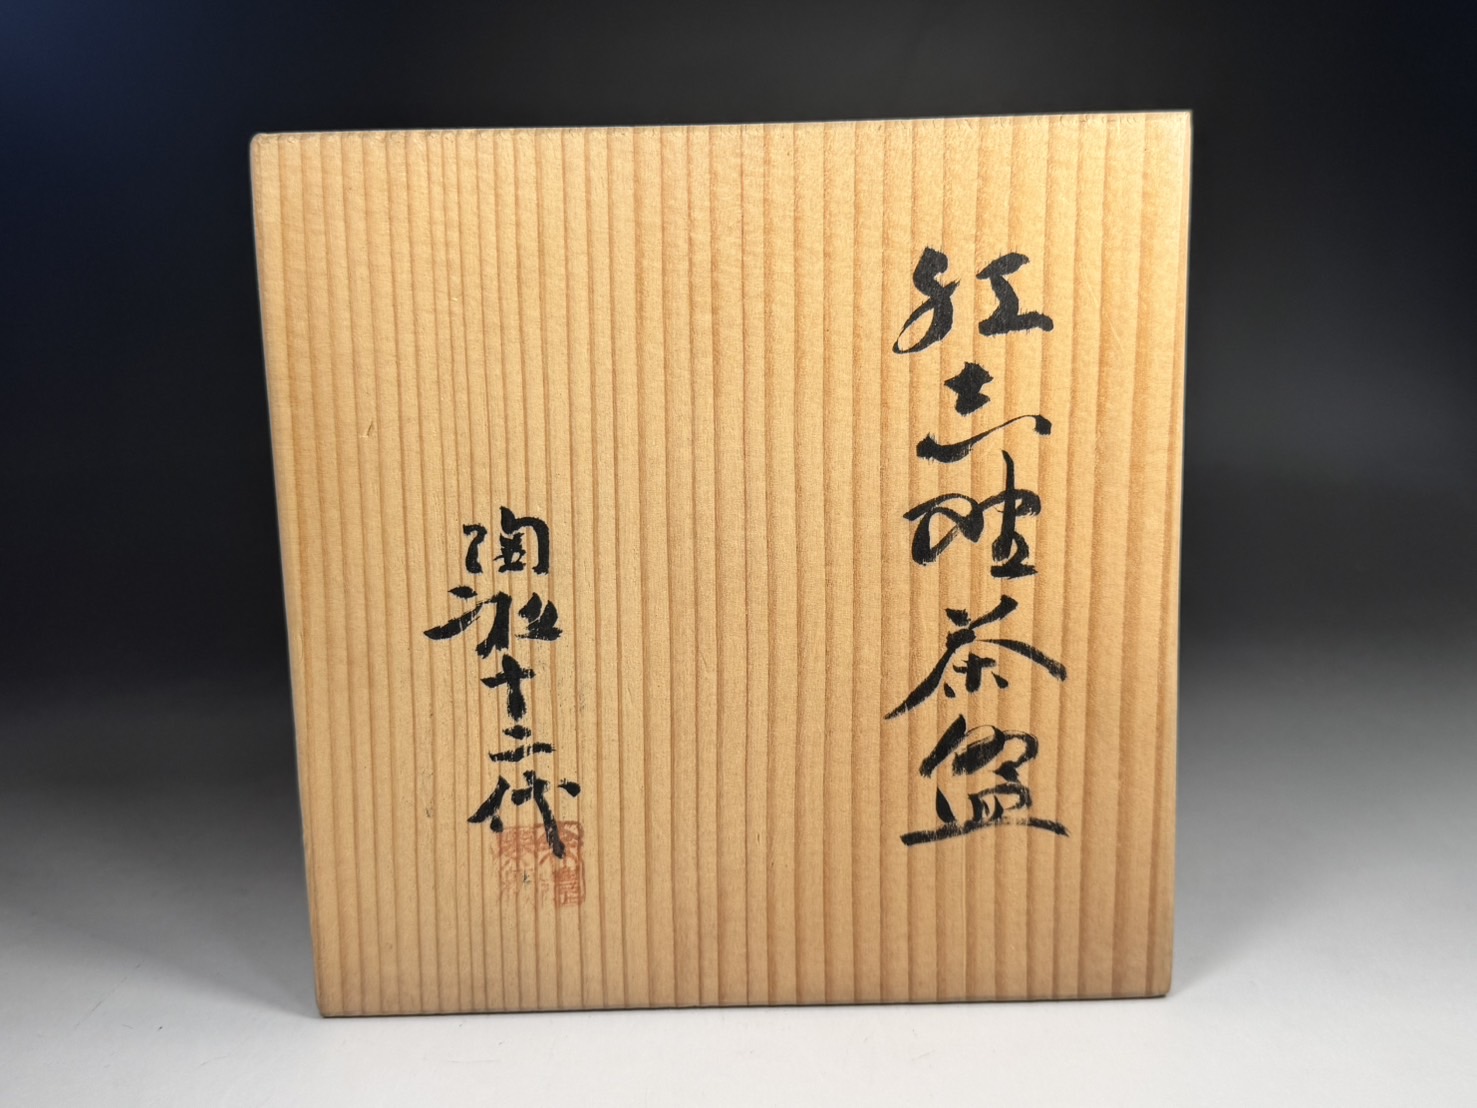 紅志野茶盌
陶祖十二代